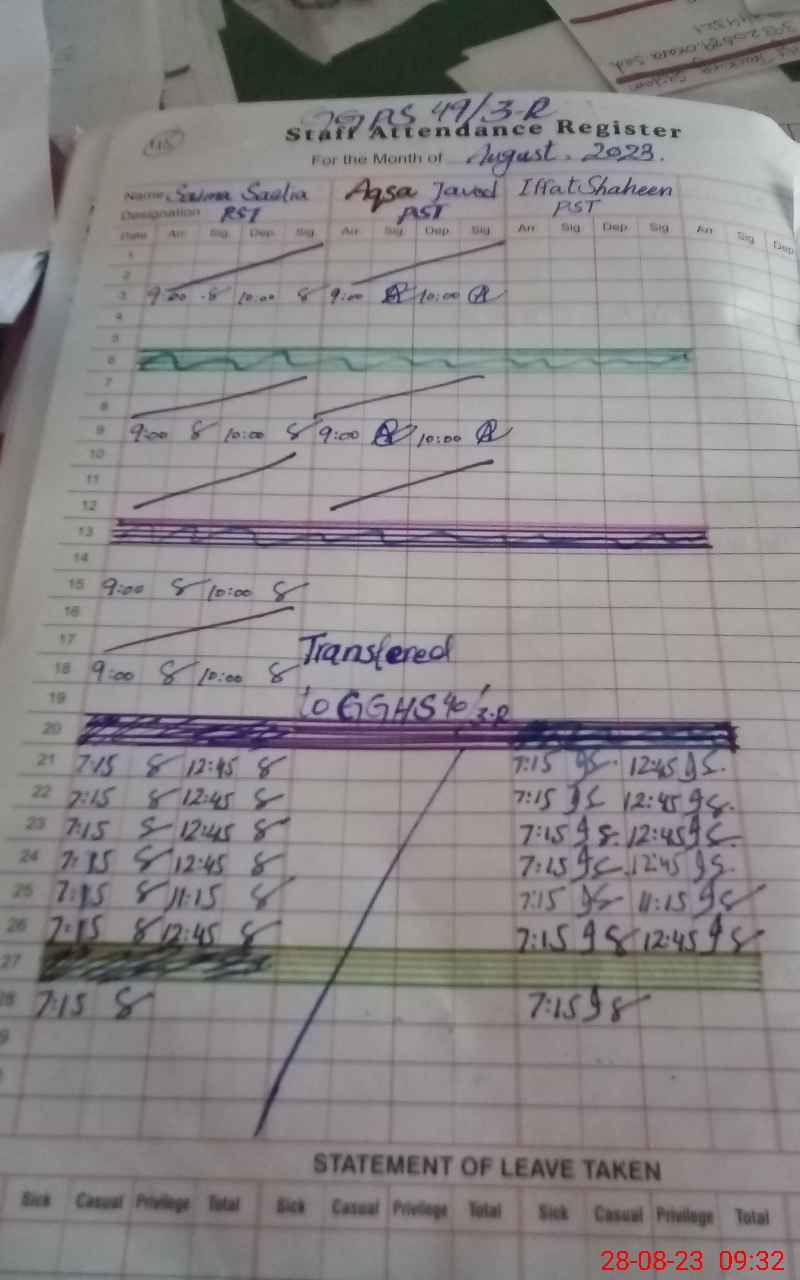 GGPS 49/3-R
Staff Attendance Register
For the Month of August, 2023.
Name Saima Sadia Aqsa Javed Iffat Shaheen
Designation PST PST PST
Date Arr. Sig. Dep. Sig. Arr. Sig. Dep. Sig. Arr. Sig. Dep. Sig. Arr. Sig. Dep.
1
2
3 9:00 10:00 9:00 10:00
4
5
6
7
8
9 9:00 10:00 9:00 10:00
10
11
12
13
14
15 9:00 10:00
16
17 Transfered
18 9:00 10:00
19 to GGHS 40/3-R
20
21 7:15 12:45 7:15 12:45
22 7:15 12:45 7:15 12:45
23 7:15 12:45 7:15 12:45
24 7:15 12:45 7:15 12:45
25 7:15 11:15 7:15 11:15
26 7:15 12:45 7:15 12:45
27
28 7:15 7:15
9
STATEMENT OF LEAVE TAKEN
Sick Casual Privilege Total Sick Casual Privilege Total Sick Casual Privilege Total
28-08-23 09:32